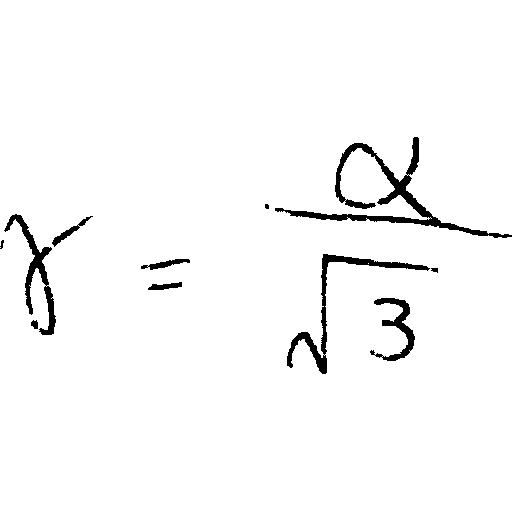 γ = α / √3